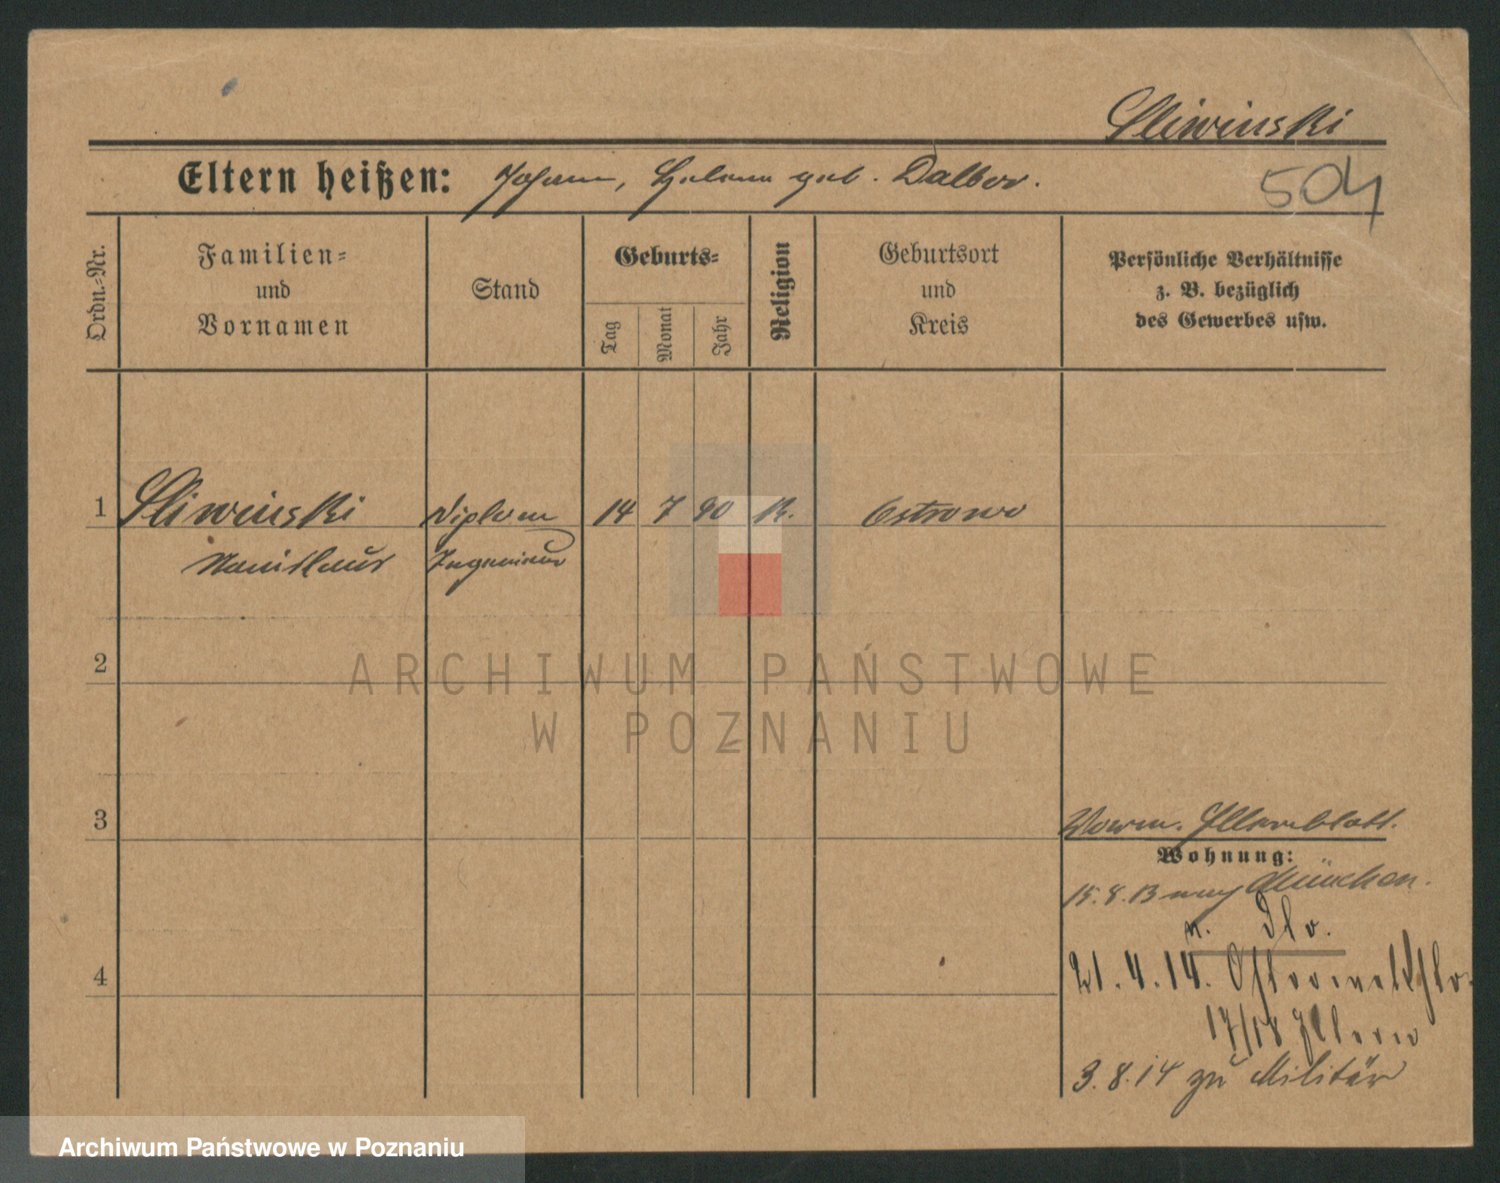 Sliwinski
Eltern heißen: Johann, Helene geb. Dalbor.
504
Ordn.-Nr.
Familien=
und
Vornamen
Stand
Geburts=
Tag
Monat
Jahr
Religion
Geburtsort
und
Kreis
Persönliche Verhältnisse
z. B. bezüglich
des Gewerbes usw.
1 Sliwinski Diplom 14 7 90 K. Ostrowo
Stanislaus Ingenieur
2
ARCHIWUM PAŃSTWOWE
W POZNANIU
3
Vorm. Elternblatt.
Wohnung:
15.8.13 München.
n.
4
21.4.14.
17/18 Eltern
3.8.14 zu Militär
Archiwum Państwowe w Poznaniu